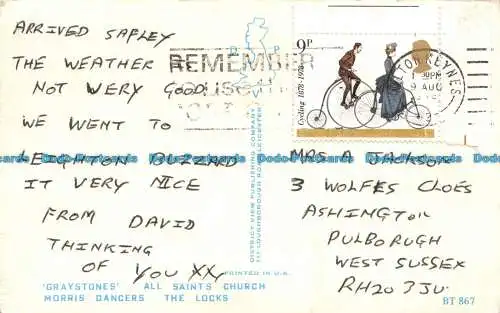 ARRIVED SAFLEY
THE WEATHER
NOT WERY GOOD
WE WENT TO
LEIGHTON BUZZARD
IT VERY NICE
FROM DAVID
THINKING
OF YOU XX
'GRAYSTONES' ALL SAINTS CHURCH
MORRIS DANCERS THE LOCKS
DISTRICT VIEW PUBLISHING COMPANY
117 LOUGHBOROUGH ROAD LEICESTER
PRINTED IN U.K.
REMEMBER
USE
9P
Cycling 1878-1978
MILTON KEYNES
PM
9 AUG
MRS A JACKSON
3 WOLFES CLOES
ASHINGTON
PULBORUGH
WEST SUSSEX
RH20 3JU
BT 867
Dodo-Postcards.com